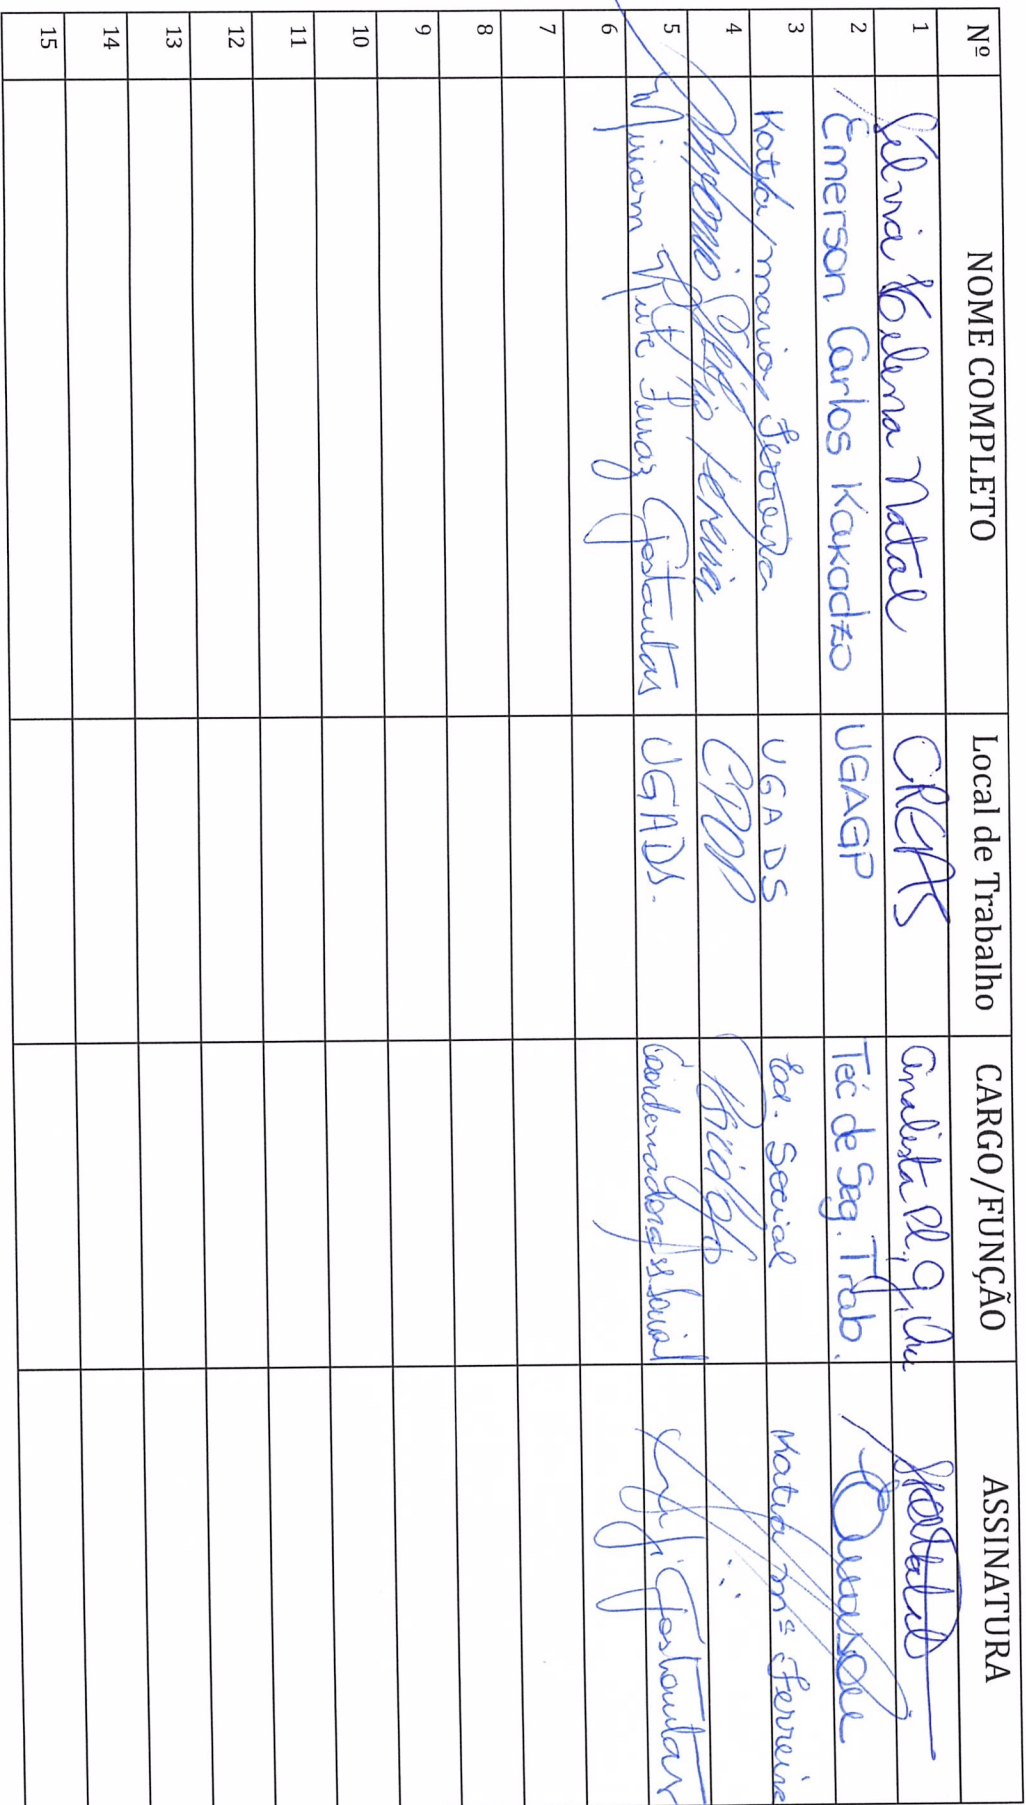 Nº NOME COMPLETO Local de Trabalho CARGO/FUNÇÃO ASSINATURA
1 Silvia Helena Natal CREAS analista Pl.,
2 Emerson Carlos Kakadzo UGAGP Téc de Seg. Trab.
3 Katya maria Ferreira UGADS Ed. Social Katya Mª Ferreira
4 Antonio Pereira
5 Miriam Rute UGADS. Coordenadora Social
6
7
8
9
10
11
12
13
14
15